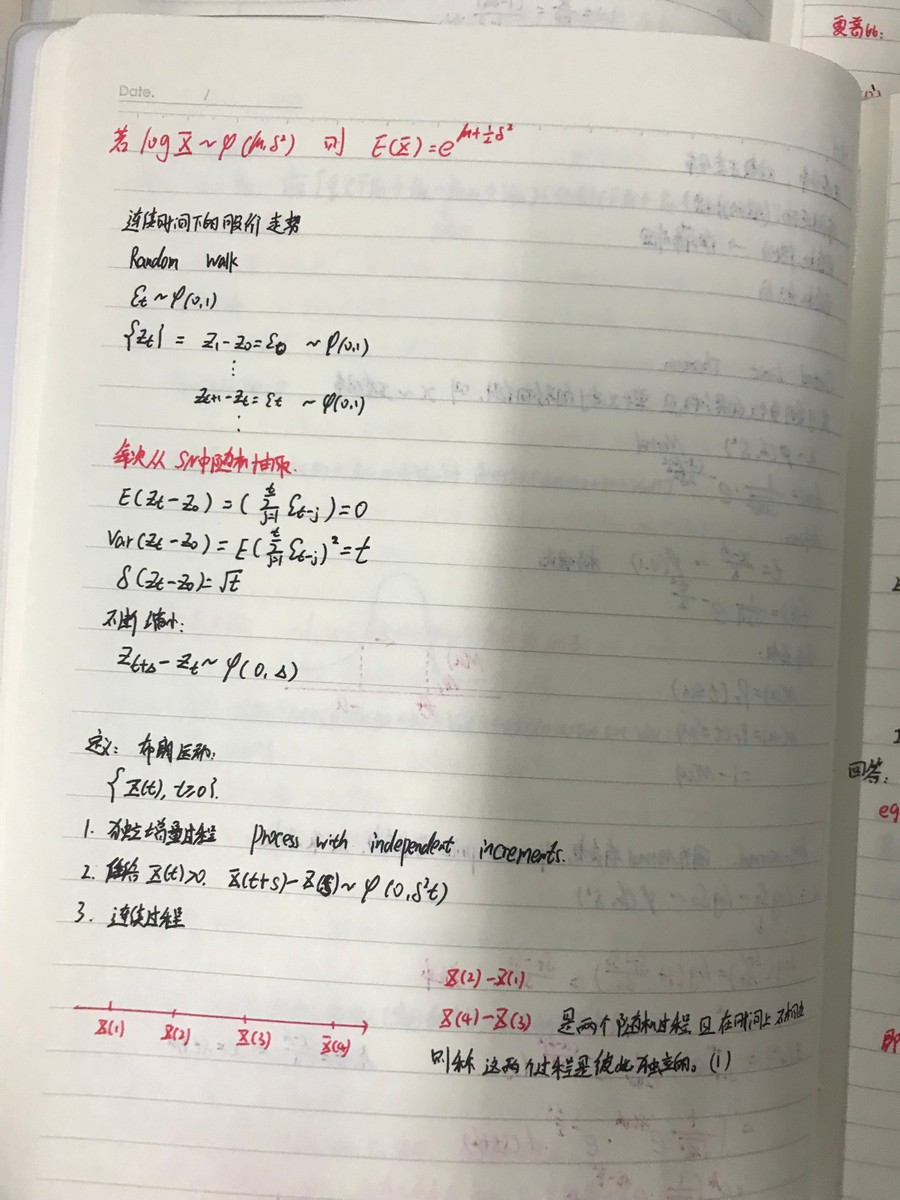 Date. /
若 log X ~ φ(μ, δ²) 则 E(X) = e^{μ+½δ²}
连续时间下的股价走势
Random Walk
εt ~ φ(0,1)
{Zt} = Z1 - Z0 = ε0 ~ φ(0,1)
⋮
Zt+1 - Zt = εt ~ φ(0,1)
⋮
每次从 SN中随机抽取.
E(Zt - Z0) = (∑_{j=1}^{t} εt-j) = 0
Var(Zt - Z0) = E(∑_{j=1}^{t} εt-j)² = t
δ(Zt - Z0) = √t
不断缩小:
Zt+Δ - Zt ~ φ(0, Δ)
定义: 布朗运动:
{X(t), t≥0}.
1. 独立增量过程 Process with independent increments.
2. X(t)>0. X(t+s) - X(s) ~ φ(0, δ²t)
3. 连续过程
X(1) X(2) X(3) X(4)
X(2) - X(1)
X(4) - X(3) 是两个随机过程 且 在时间上不相交
则称 这两个过程是彼此独立的。(1)
更高
回答:
eg
即